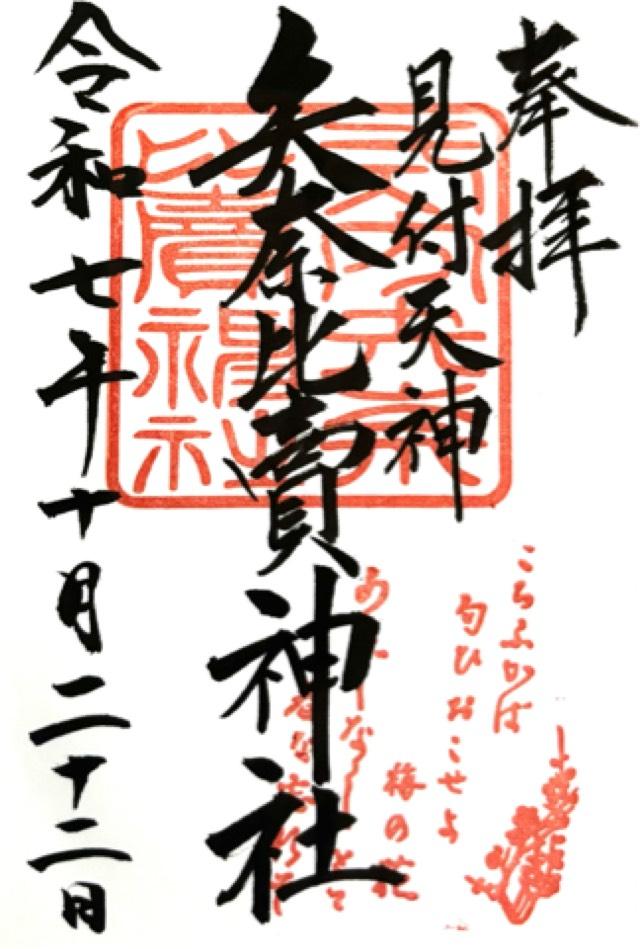 奉拝
見付天神
矢奈比賣神社
令和七年十月二十二日
こちふかば
匂ひおこせよ
梅の花
あるじなしとて